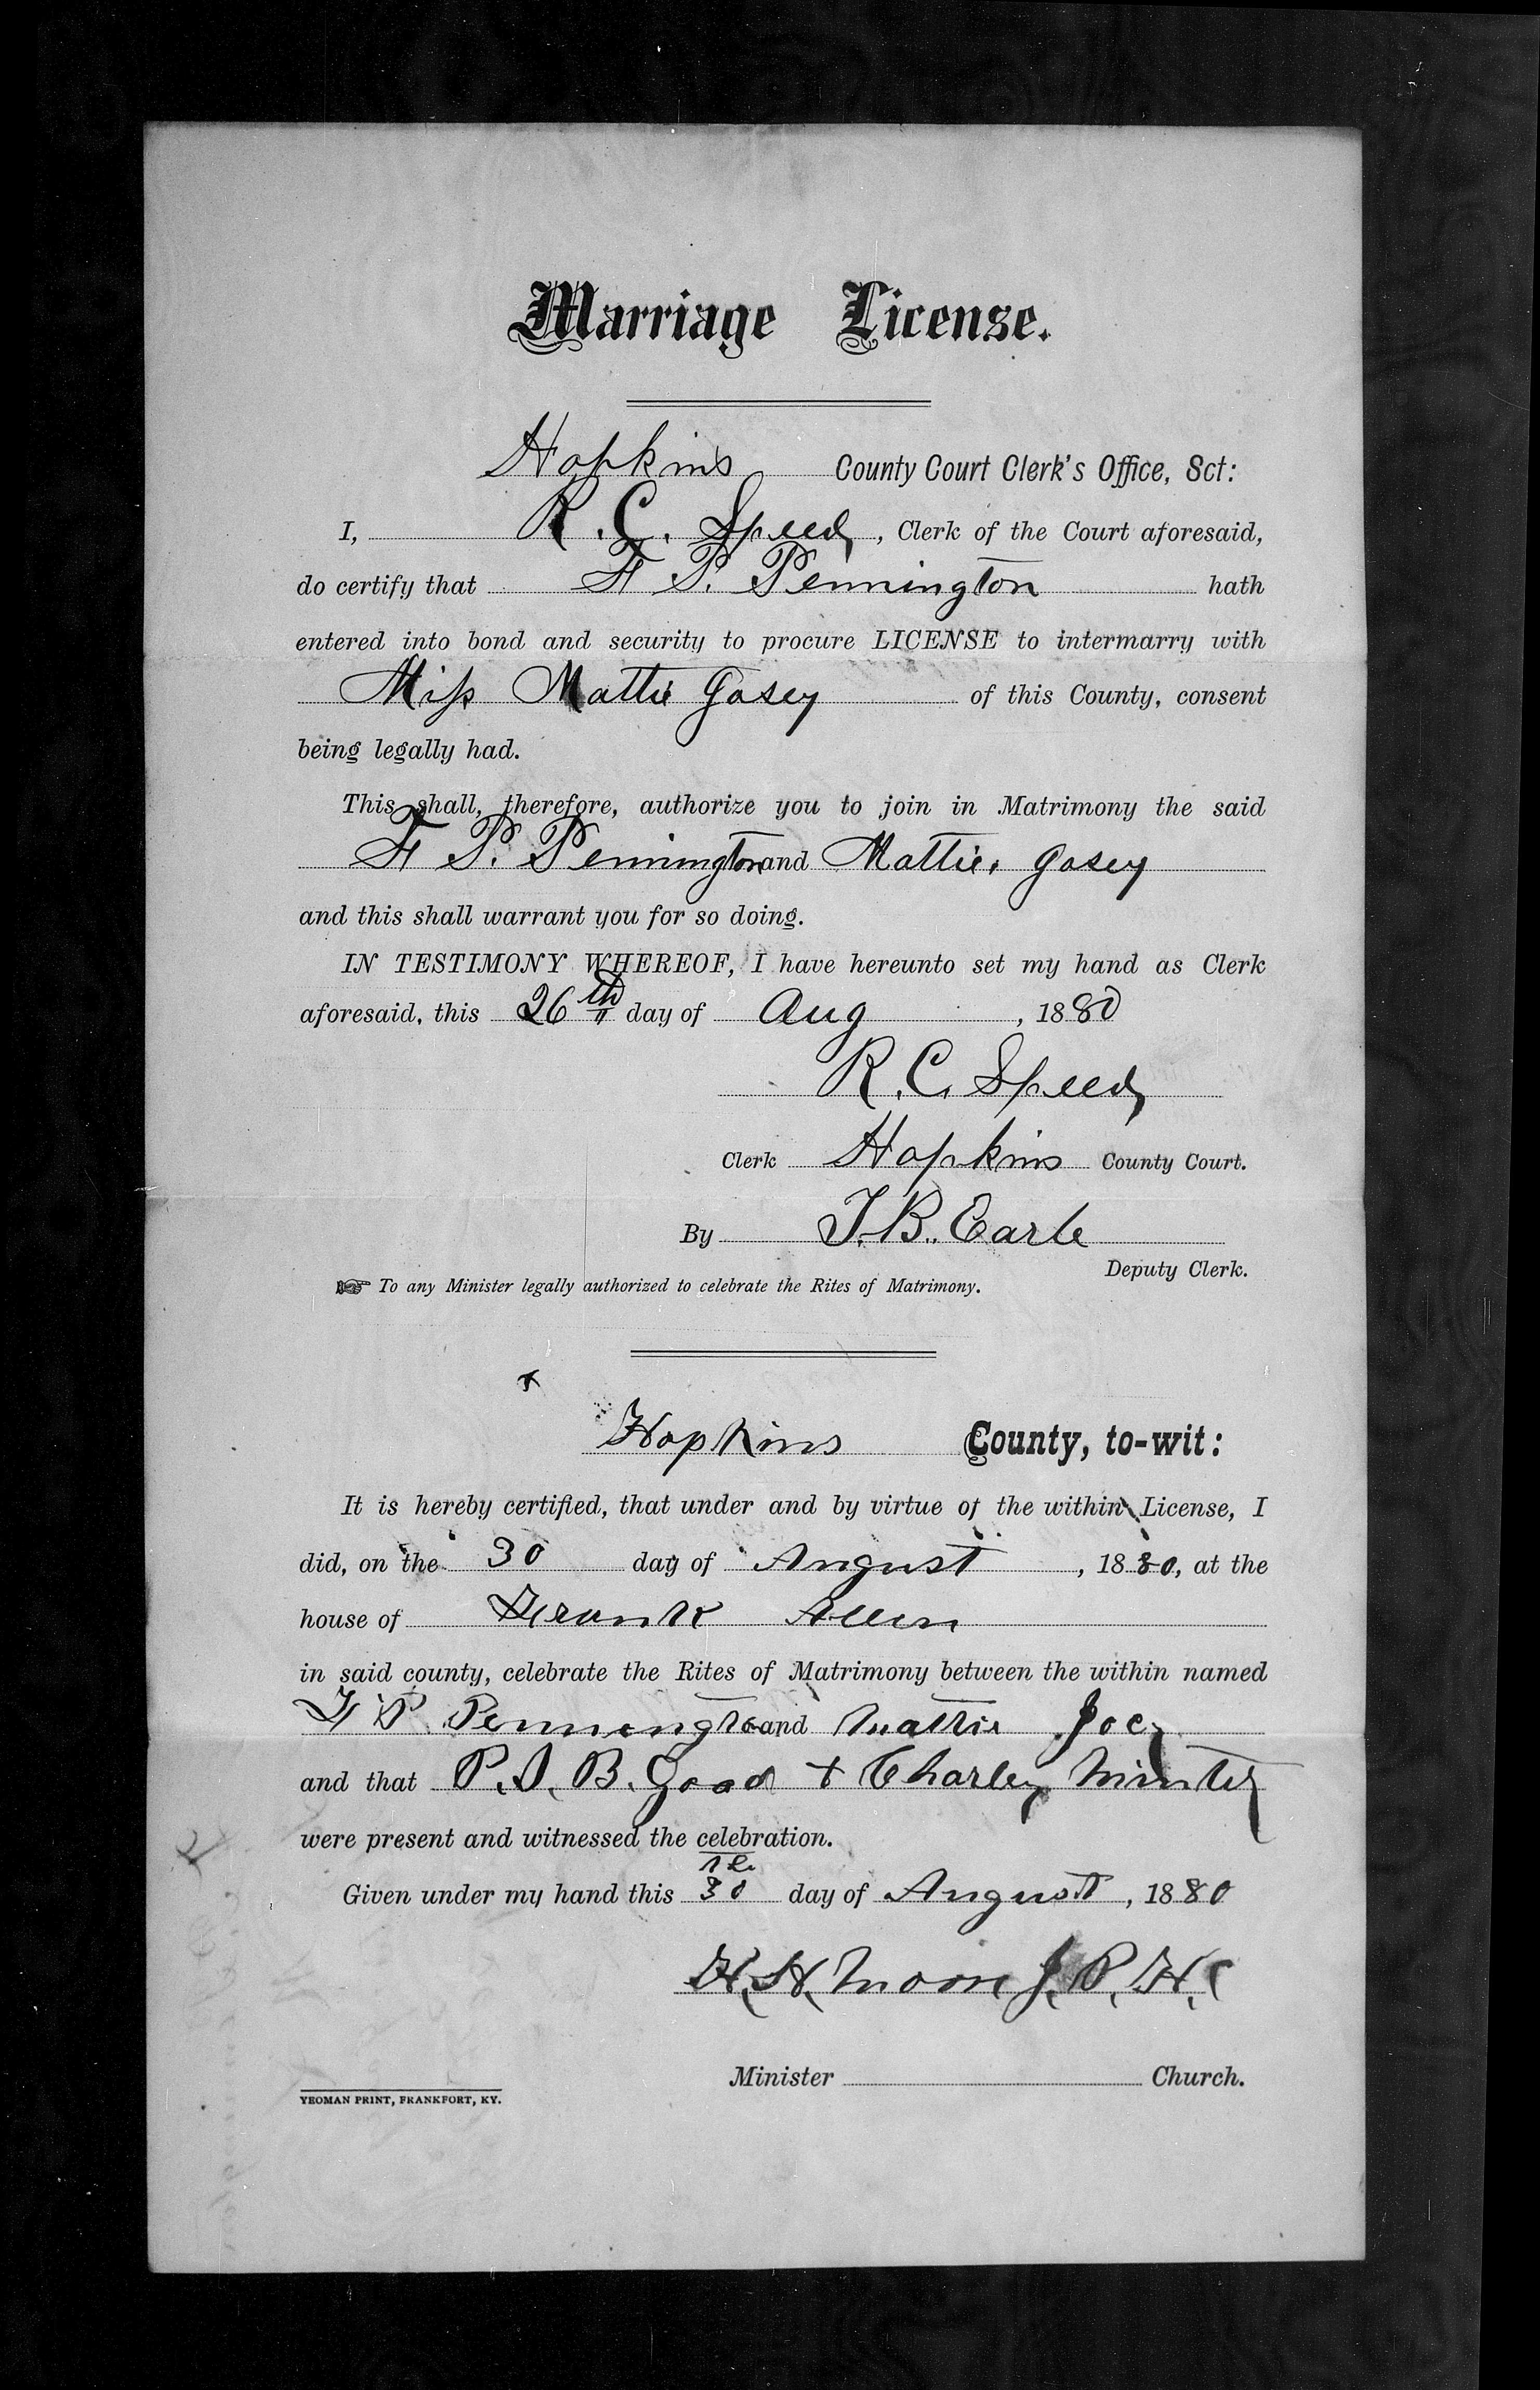 Marriage License.
Hopkins County Court Clerk's Office, Sct:
I, R. C. Speed, Clerk of the Court aforesaid,
do certify that F P. Pennington hath
entered into bond and security to procure LICENSE to intermarry with
Miss Mattie Gosey of this County, consent
being legally had.
This shall, therefore, authorize you to join in Matrimony the said
F P. Pennington and Mattie. Gosey
and this shall warrant you for so doing.
IN TESTIMONY WHEREOF, I have hereunto set my hand as Clerk
aforesaid, this 26th day of Aug, 1880
R. C. Speed
Clerk Hopkins County Court.
By J. B. Earle
Deputy Clerk.
☞ To any Minister legally authorized to celebrate the Rites of Matrimony.
Hopkins County, to-wit:
It is hereby certified, that under and by virtue of the within License, I
did, on the 30 day of August, 1880, at the
house of Frank Allen
in said county, celebrate the Rites of Matrimony between the within named
F P Pennington and Mattie
and that P. D. B. Good + Charley Minter
were present and witnessed the celebration.
Given under my hand this 30th day of August, 1880
H. H. Moore J. P. H. C
Minister Church.
YEOMAN PRINT, FRANKFORT, KY.